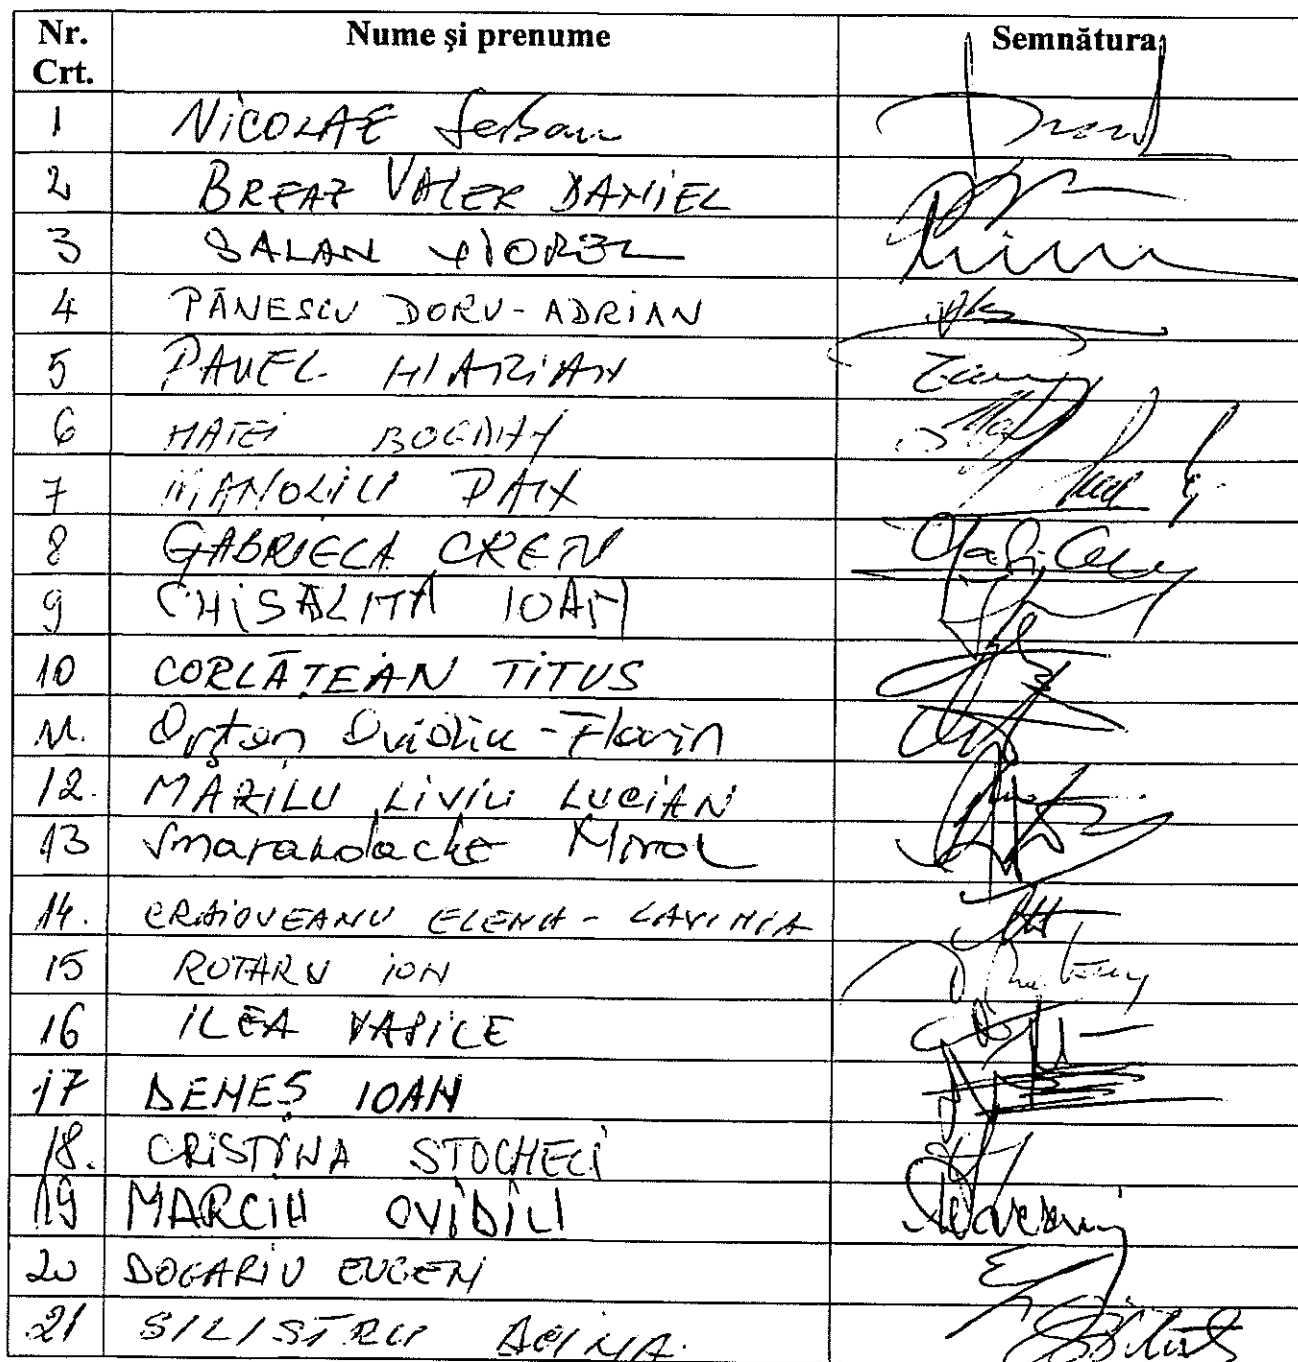 Nr. Crt. Nume și prenume Semnătura
1 NICOLAE Serban
2 BREAZ VALER DANIEL
3 SALAN VIOREL
4 PĂNESCU DORU-ADRIAN
5 PAVEL MARIAN
6 MATEI BOGDAN
7 MANOLIU DAN
8 GABRIELA CREȚU
9 CHISĂLIȚĂ IOAN
10 CORLĂȚEAN TITUS
11. Orțan Ovidiu-Florin
12. MARILU LIVIU LUCIAN
13 Smarandache Miron
14. CRAIOVEANU ELENA-LAVINIA
15 ROTARU ION
16 ILEA VASILE
17 DENEȘ IOAN
18. CRISTINA STOCHECI
19 MARCIU OVIDIU
20 DOGARIU EUGEN
21 SILISTRU DOINA